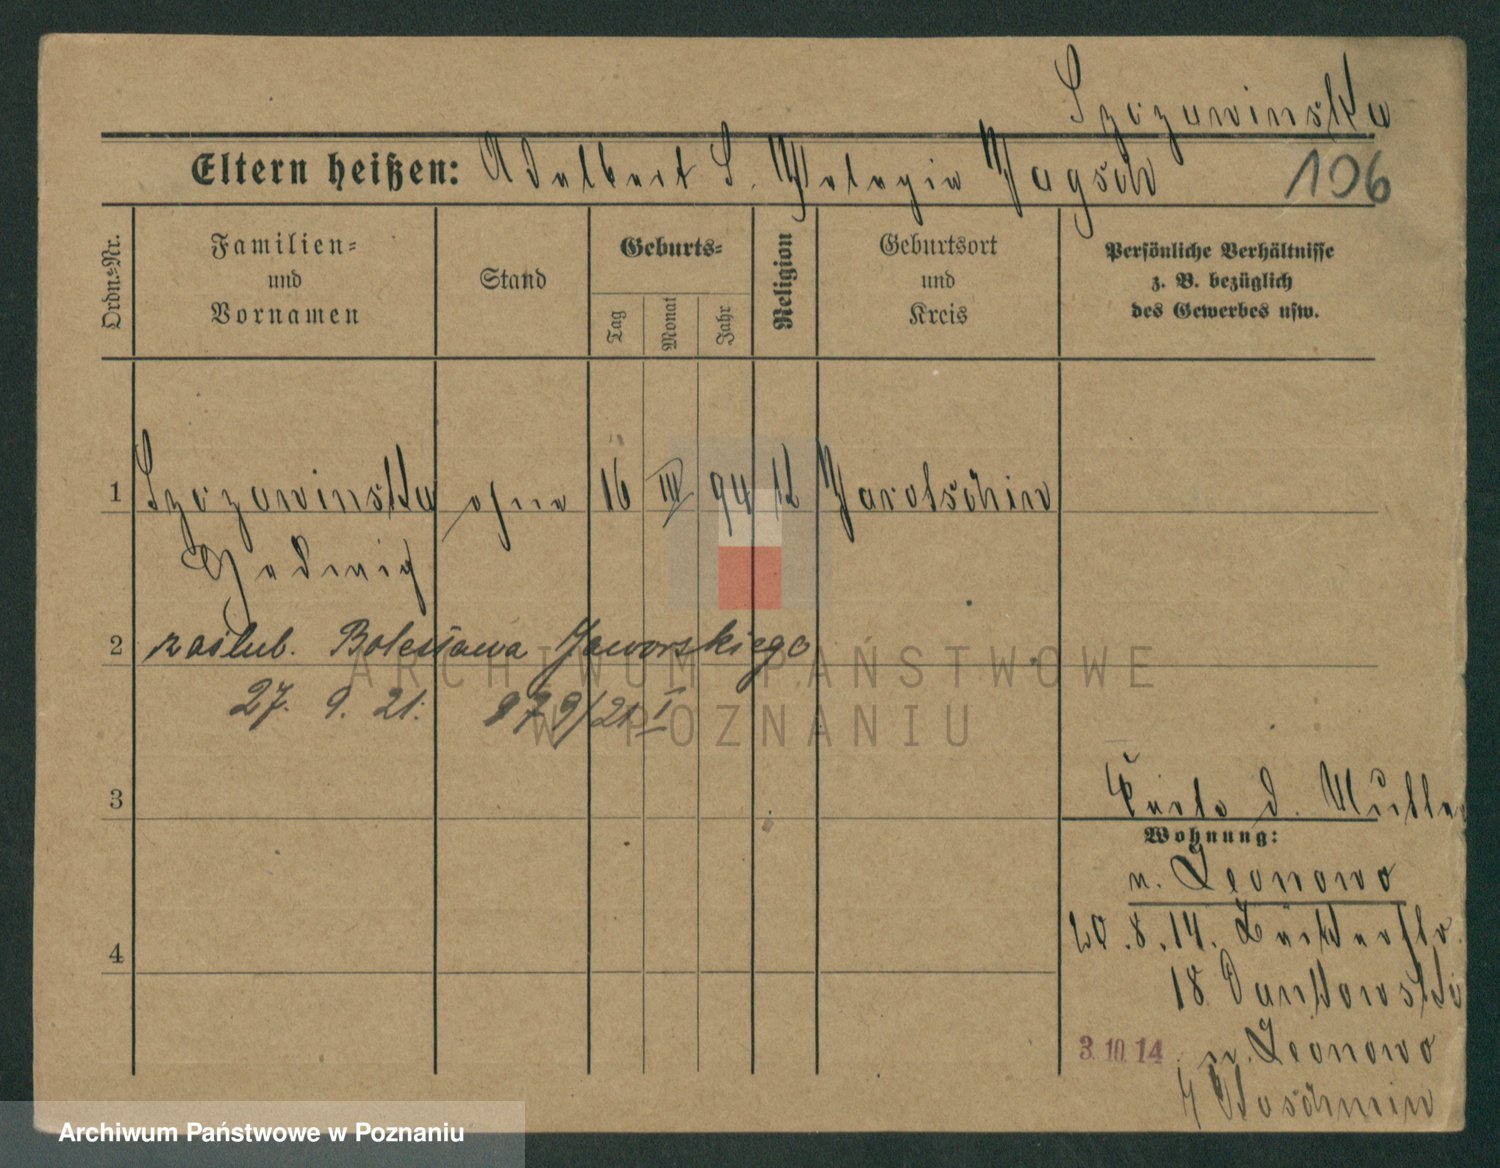 Szczawinska
Eltern heißen: Adalbert S. Pelagia Jagsch
106
Ordn.-Nr.
Familien-
und
Vornamen
Stand
Geburts-
Tag
Monat
Jahr
Religion
Geburtsort
und
Kreis
Persönliche Verhältnisse
z. B. bezüglich
des Gewerbes usw.
1 Szczawinska ohne 16 III 94 k Jarotschin
Hedwig
2 zaślub. Bolesława Jaworskiego
27. 9. 21. 879/21 I
3
4
Karte d. Mutter
Wohnung:
n. Leonowo
20.8.14. Bäckerstr.
18
3.10.14 n. Leonowo
Koschmin
ARCHIWUM PAŃSTWOWE
W POZNANIU
Archiwum Państwowe w Poznaniu